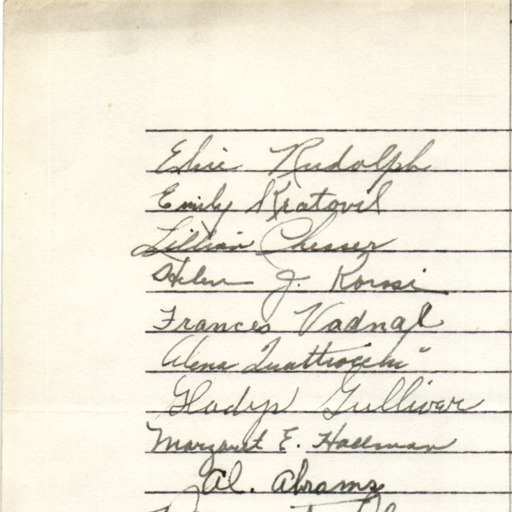 Elsie Rudolph
Emily Kratovil
Lillian Chesser
Helen J. Korosi
Frances Vadnal
Alena Quattrocchi
Gladys Gulliver
Margaret E. Hallman
Al. Abrams